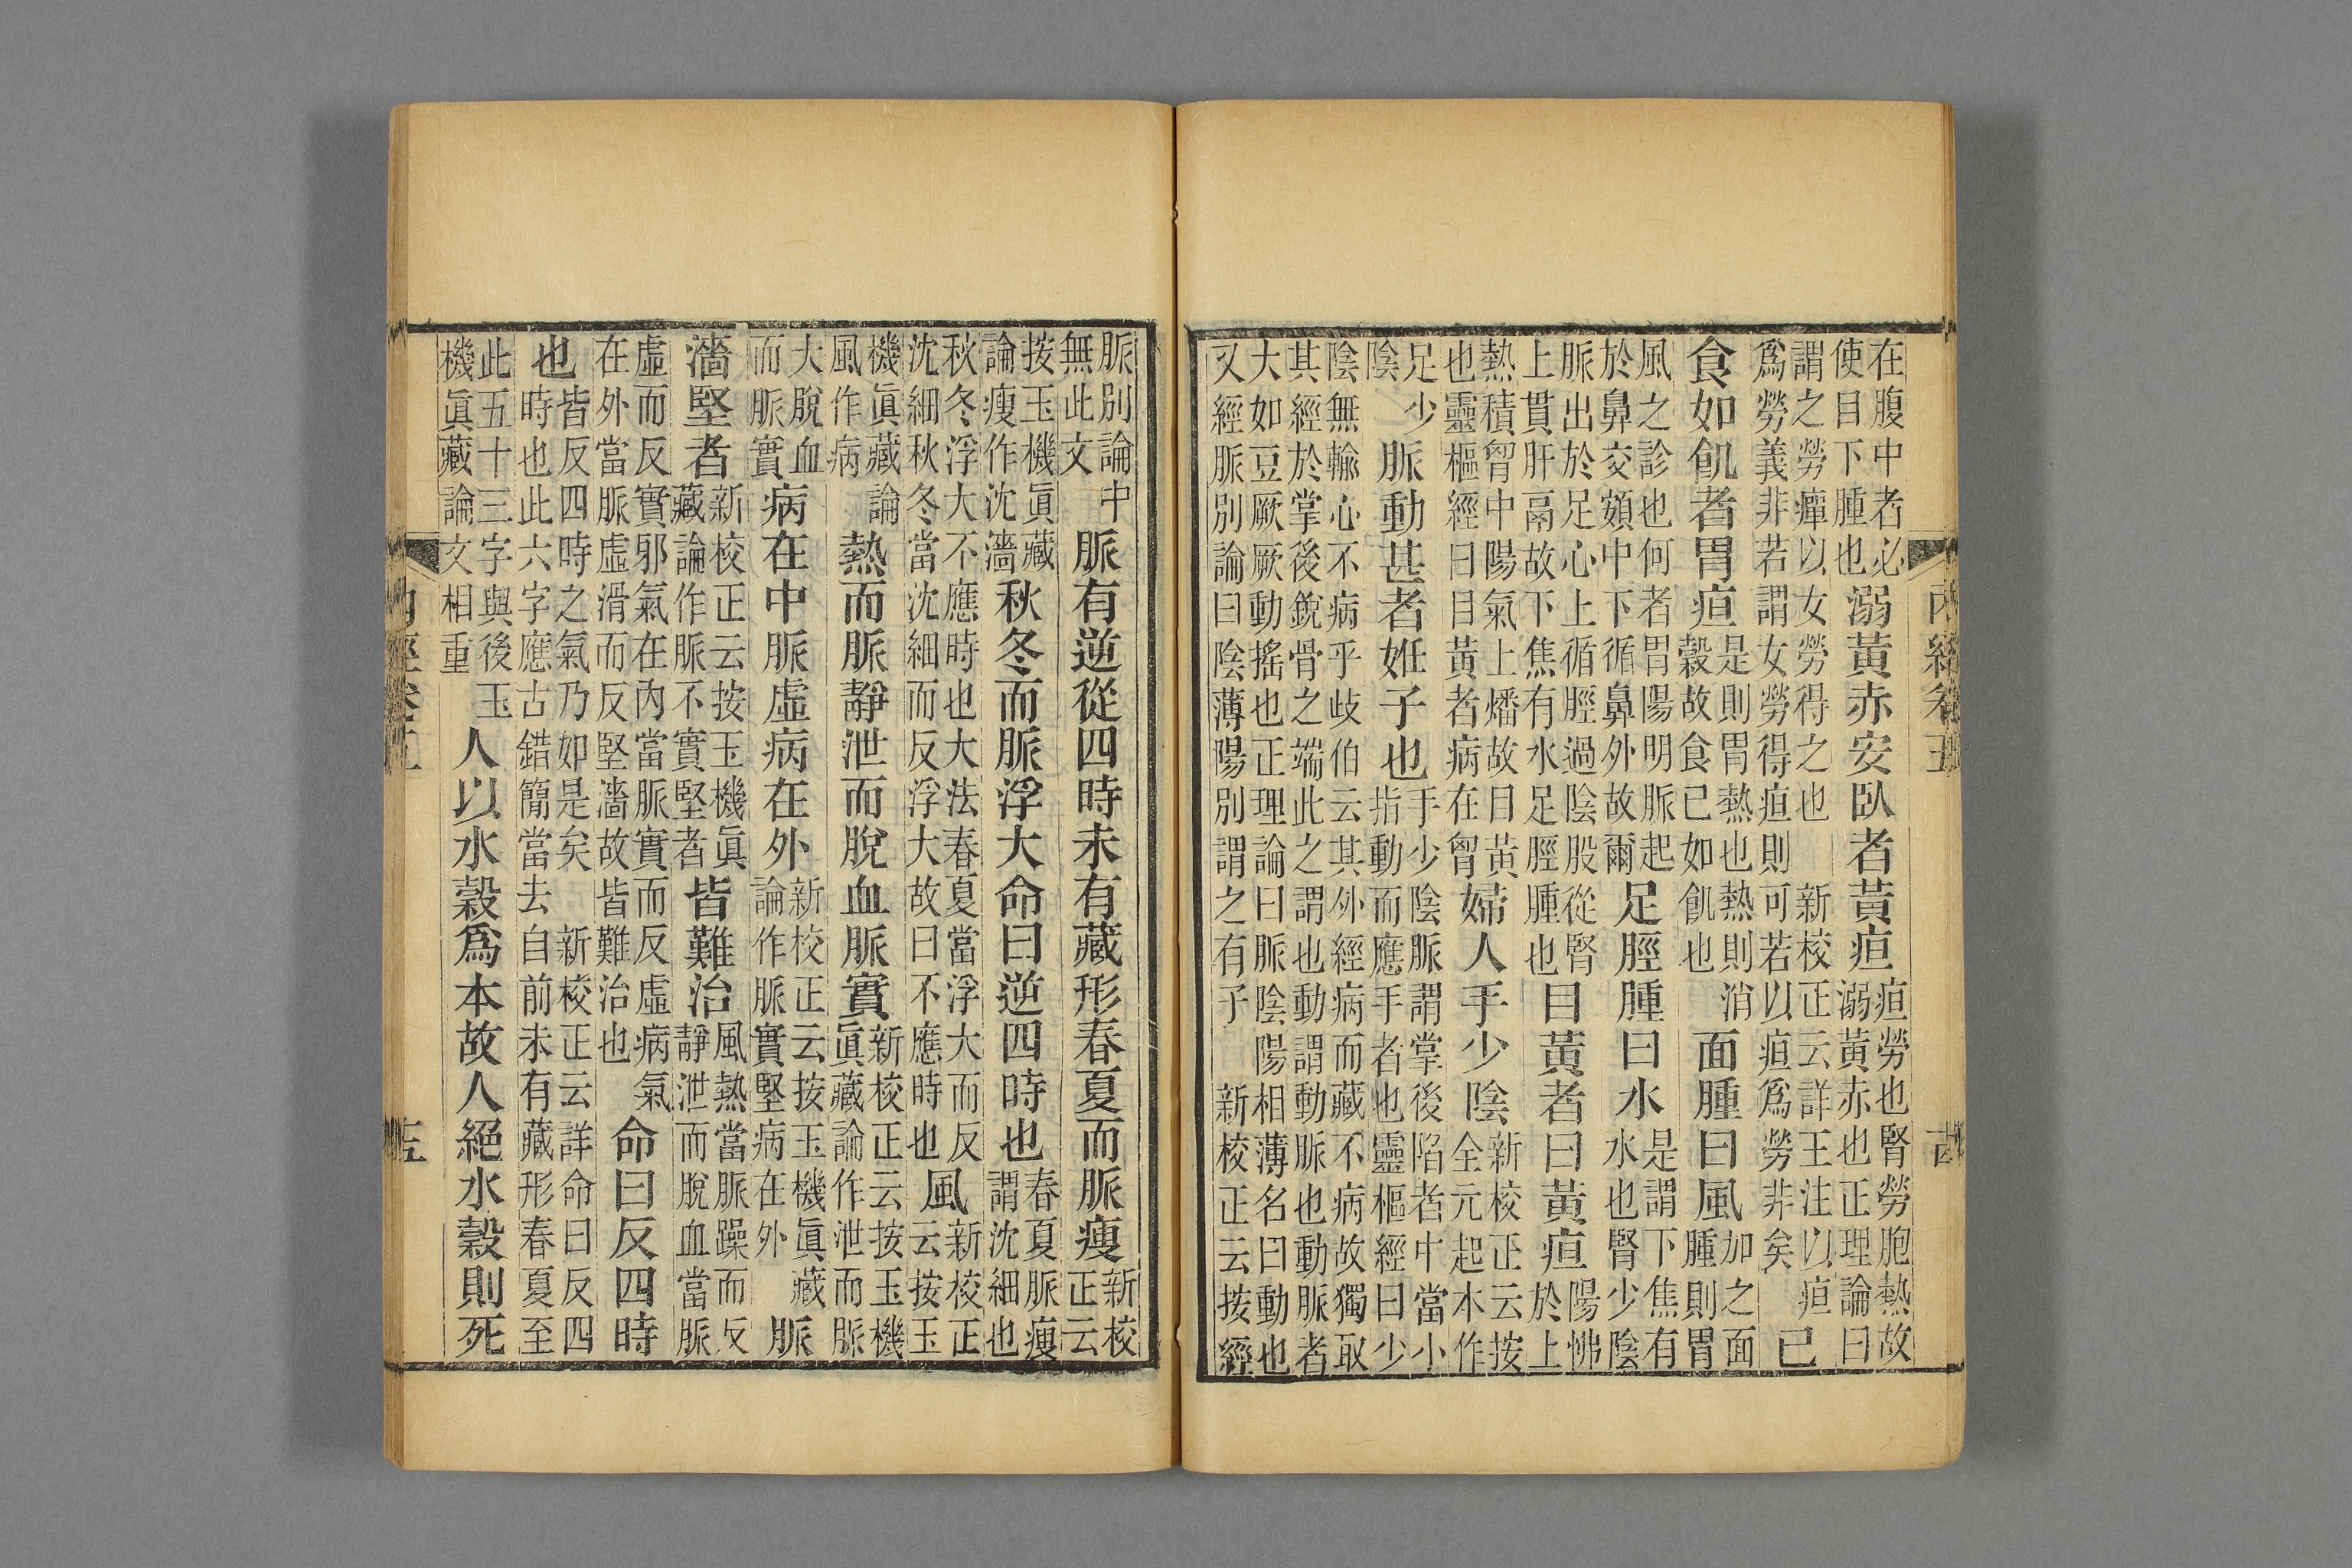 在腹中者必使目下腫也溺黃赤安臥者黃疸疸勞也腎勞胞熱故溺黃赤也正理論曰
謂之勞癉以女勞得之也　新校正云詳王注以疸爲勞義非若謂女勞得疸則可若以疸爲勞非矣已
食如飢者胃疸是則胃熱也熱則消穀故食已如飢也面腫曰風加之面腫則胃
風之診也何者胃陽明脈起於鼻交頞中下循鼻外故爾足脛腫曰水是謂下焦有水也腎少陰
脈出於足心上循脛過陰股從腎上貫肝鬲故下焦有水足脛腫也目黃者曰黃疸陽怫於上
熱積胷中陽氣上燔故目黃也靈樞經曰目黃者病在胷婦人手少陰新校正云按全元起本作
足少陰脈動甚者姙子也手少陰脈謂掌後陷者中當小指動而應手者也靈樞經曰少
陰無輸心不病乎歧伯云其外經病而藏不病故獨取其經於掌後銳骨之端此之謂也動謂動脈也動脈者
大如豆厥厥動搖也正理論曰脈陰陽相薄名曰動也又經脈別論曰陰薄陽別謂之有子　新校正云按經
內經卷五
脈別論中無此文脈有逆從四時未有藏形春夏而脈瘦新校正云
按玉機眞藏論瘦作沈濇秋冬而脈浮大命曰逆四時也春夏脈瘦謂沈細也
秋冬浮大不應時也大法春夏當浮大而反沈細秋冬當沈細而反浮大故曰不應時也風新校正云按玉
機眞藏論風作病熱而脈靜泄而脫血脈實新校正云按玉機眞藏論作泄而脈
大脫血而脈實病在中脈虛病在外新校正云按玉機眞藏論作脈實堅病在外脈
濇堅者新校正云按玉機眞藏論作脈不實堅者皆難治風熱當脈躁而反靜泄而脫血當脈
虛而反實邪氣在內當脈實而反虛病氣在外當脈虛滑而反堅濇故皆難治也命曰反四時
也皆反四時之氣乃如是矣　新校正云詳命曰反四時也此六字應古錯簡當去自前未有藏形春夏至
此五十三字與後玉機眞藏論文相重人以水穀爲本故人絕水穀則死